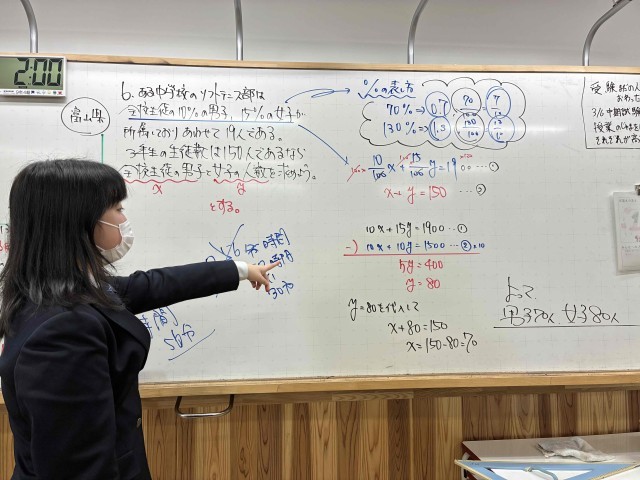 2:00
富山県
6. ある中学校のソフトテニス部は
全校生徒の10%の男子、15%の女子が
所属しておりあわせて19人である。
全校生徒の男子と女子の人数を求めよう。
x y
とする。
%の表し方
70% ⇒ 0.7 70/100 7/10
130% ⇒ 1.3 130/100 13/10
10/100 x + 15/100 y = 19 … ①
x + y = 150 … ②
10x + 15y = 1900 … ①
-) 10x + 10y = 1500 … ②×10
5y = 400
y = 80
y = 80を代入して
x + 80 = 150
x = 150 - 80 = 70
よって、
男子70人、女子80人
時間
30分